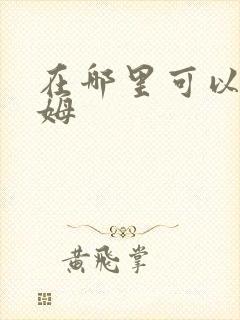 在哪里可以
姆
黄飞掌